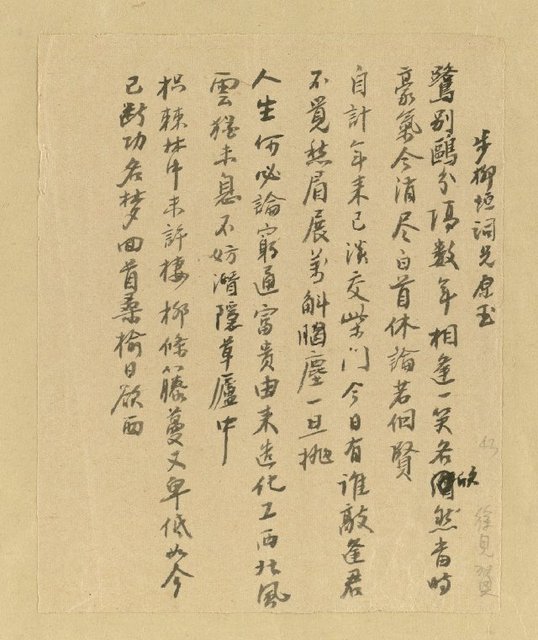 步柳垣詞兄原玉
徐見賢
鷺別鷗分隔數年相逢一笑各欣然當時
豪氣今消尽白首休論若個賢
自計年来已淡交柴门今日有誰敲逢君
不覓愁眉展萬斛胸塵一旦拋
人生何必論窮通富貴由来造化工西北風
雲猶未息不妨潛隱草廬中
枳棘林中未許棲柳條籐蔓又卑低如今
已断功名梦回首桑榆日欲西